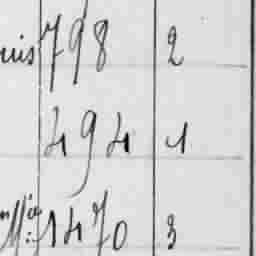 uis 798 2
494 1
1470 3